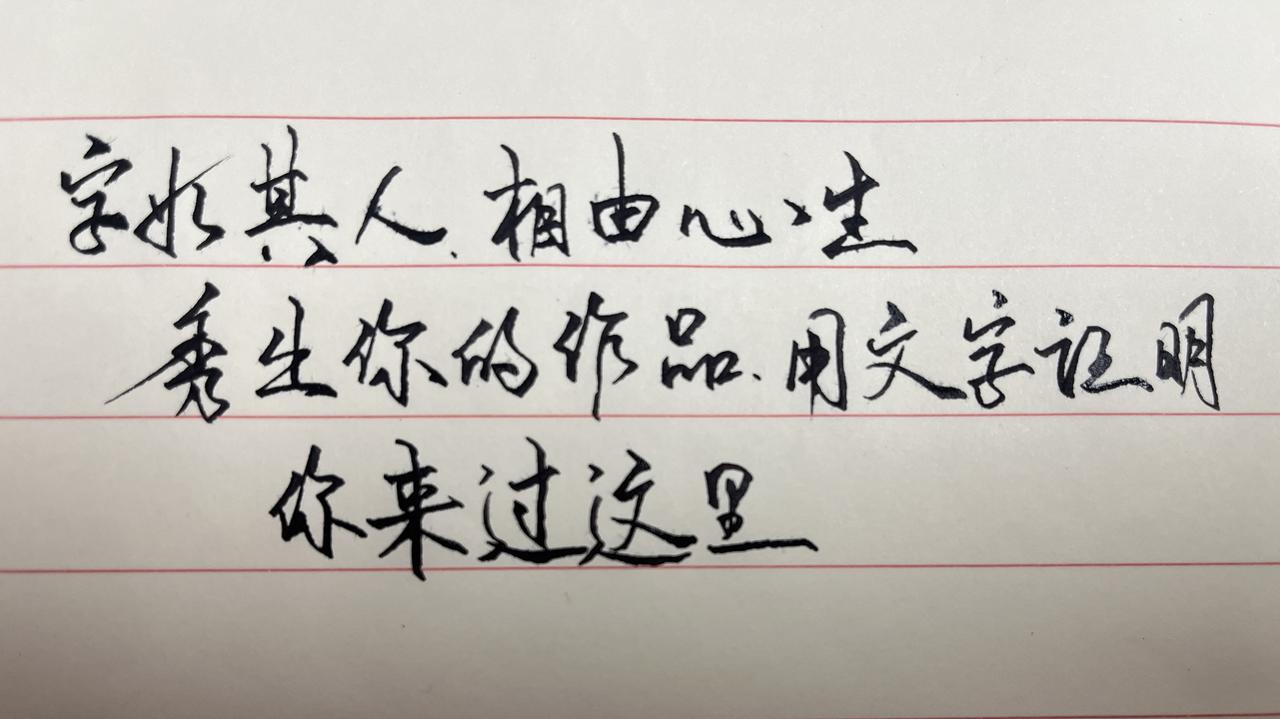 字如其人.相由心生
秀出你的作品.用文字证明
你来过这里